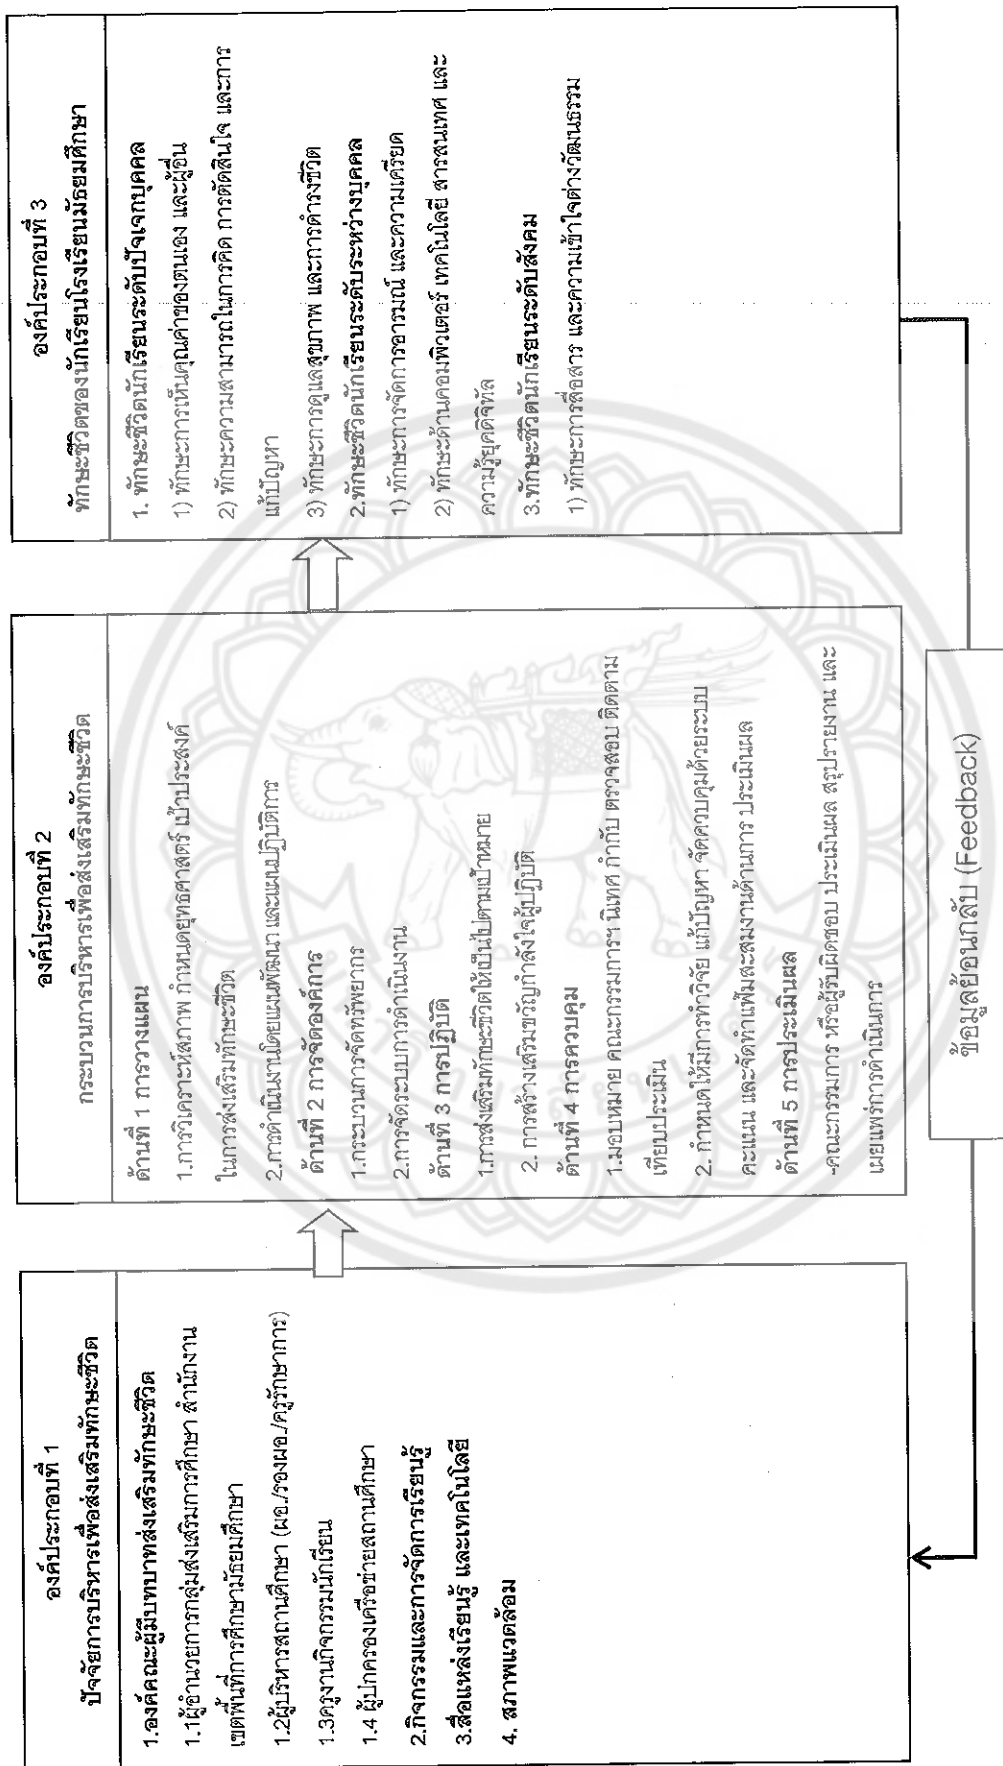 องค์ประกอบที่ 1
ปัจจัยการบริหารเพื่อส่งเสริมทักษะชีวิต
1.องค์คณะผู้มีบทบาทส่งเสริมทักษะชีวิต
1.1ผู้อำนวยการกลุ่มส่งเสริมการศึกษา สำนักงาน
เขตพื้นที่การศึกษามัธยมศึกษา
1.2ผู้บริหารสถานศึกษา (ผอ./รองผอ./ครูรักษาการ)
1.3ครูงานกิจกรรมนักเรียน
1.4 ผู้ปกครองเครือข่ายสถานศึกษา
2.กิจกรรมและการจัดการเรียนรู้
3.สื่อแหล่งเรียนรู้ และเทคโนโลยี
4. สภาพแวดล้อม
องค์ประกอบที่ 2
กระบวนการบริหารเพื่อส่งเสริมทักษะชีวิต
ด้านที่ 1 การวางแผน
1.การวิเคราะห์สภาพ กำหนดยุทธศาสตร์ เป้าประสงค์
ในการส่งเสริมทักษะชีวิต
2.การดำเนินงานโดยแผนพัฒนา และแผนปฏิบัติการ
ด้านที่ 2 การจัดองค์การ
1.กระบวนการจัดทรัพยากร
2.การจัดระบบการดำเนินงาน
ด้านที่ 3 การปฏิบัติ
1.การส่งเสริมทักษะชีวิตให้เป็นไปตามเป้าหมาย
2. การสร้างเสริมขวัญกำลังใจผู้ปฏิบัติ
ด้านที่ 4 การควบคุม
1.มอบหมาย คณะกรรมการฯ นิเทศ กำกับ ตรวจสอบ ติดตาม
เทียบประเมิน
2. กำหนดให้มีการทำวิจัย แก้ปัญหา จัดควบคุมด้วยระบบ
คะแนน และจัดทำแฟ้มสะสมงานด้านการ ประเมินผล
ด้านที่ 5 การประเมินผล
-คณะกรรมการ หรือผู้รับผิดชอบ ประเมินผล สรุปรายงาน และ
เผยแพร่การดำเนินการ
องค์ประกอบที่ 3
ทักษะชีวิตของนักเรียนโรงเรียนมัธยมศึกษา
1. ทักษะชีวิตนักเรียนระดับปัจเจกบุคคล
1) ทักษะการเห็นคุณค่าของตนเอง และผู้อื่น
2) ทักษะความสามารถในการคิด การตัดสินใจ และการ
แก้ปัญหา
3) ทักษะการดูแลสุขภาพ และการดำรงชีวิต
2.ทักษะชีวิตนักเรียนระดับระหว่างบุคคล
1) ทักษะการจัดการอารมณ์ และความเครียด
2) ทักษะด้านคอมพิวเตอร์ เทคโนโลยี สารสนเทศ และ
ความรู้ยุคดิจิทัล
3.ทักษะชีวิตนักเรียนระดับสังคม
1) ทักษะการสื่อสาร และความเข้าใจต่างวัฒนธรรม
ข้อมูลย้อนกลับ (Feedback)